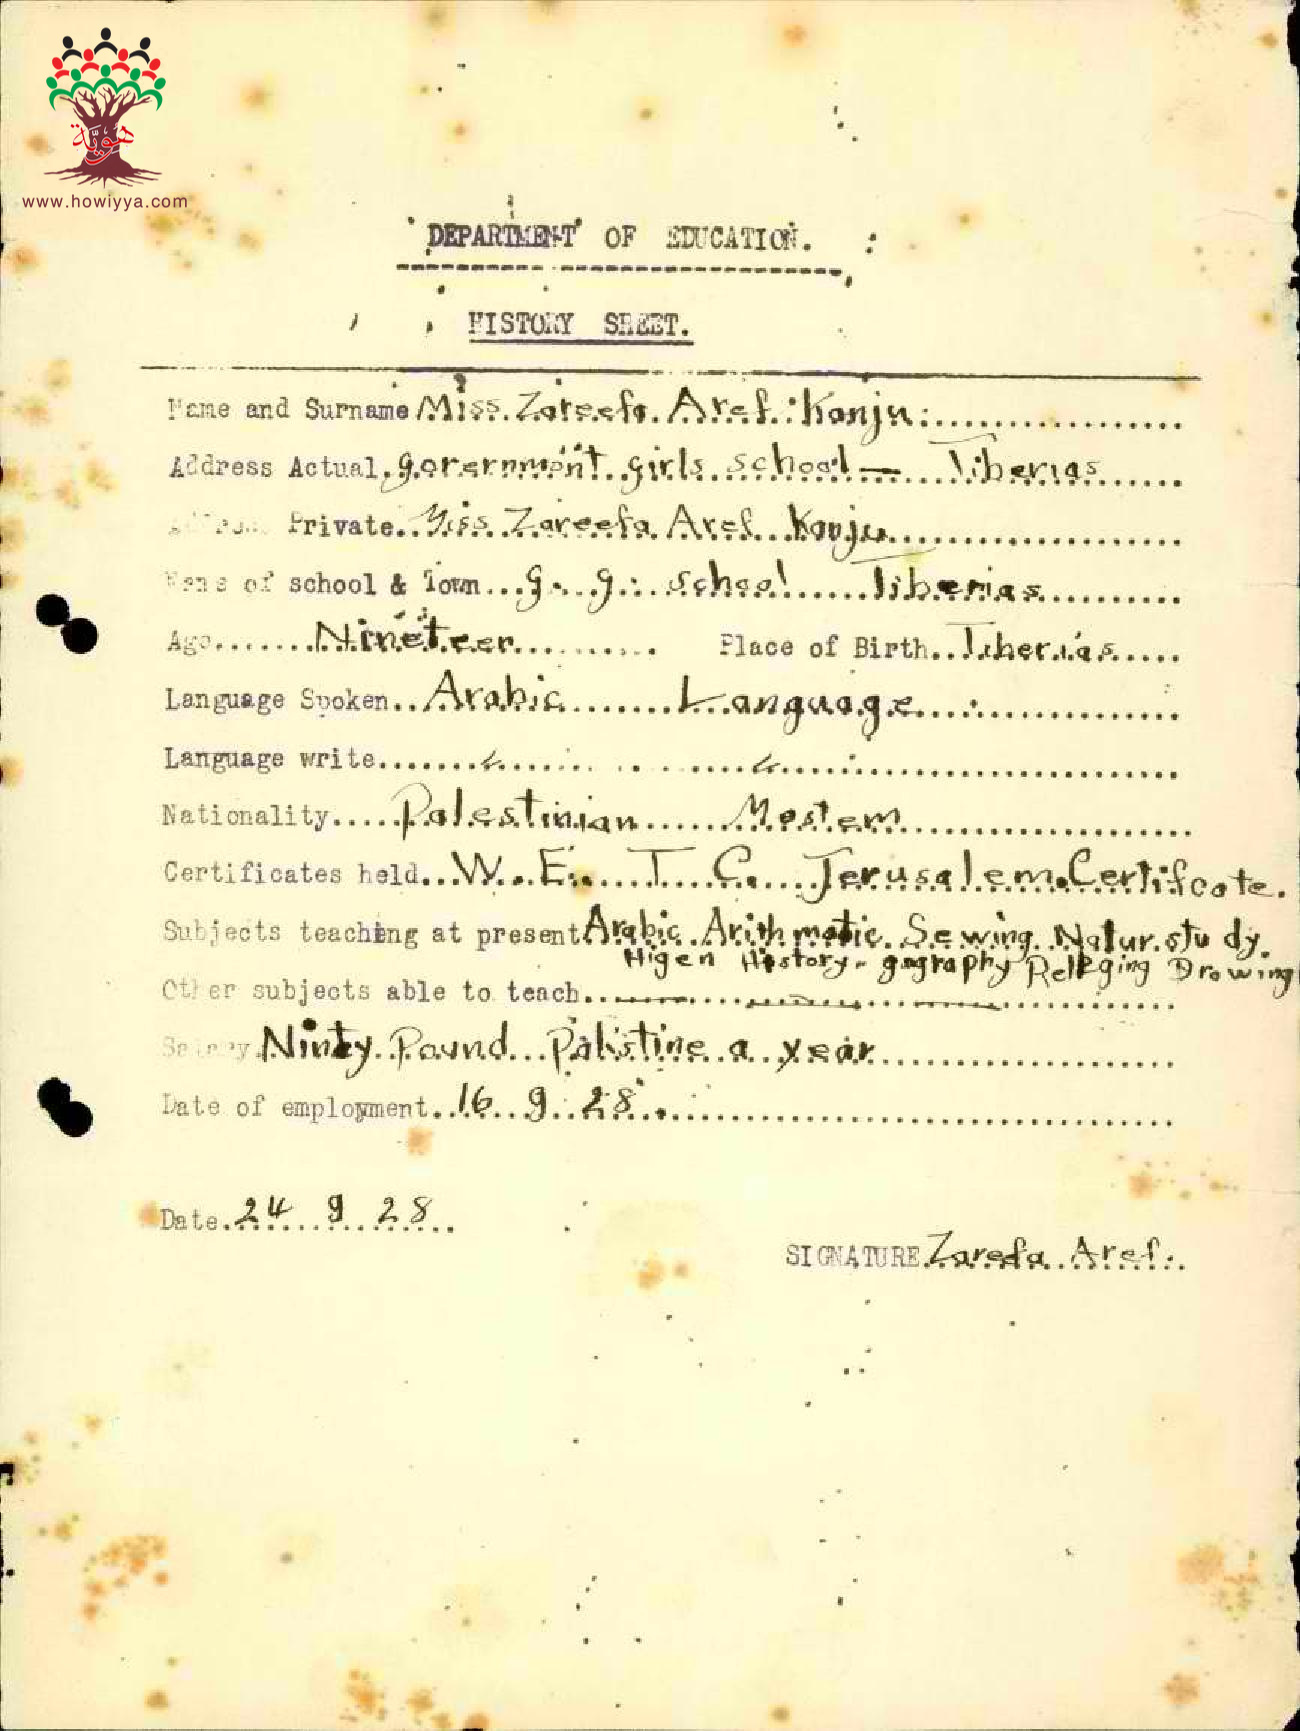 هويّة
www.howiyya.com
DEPARTMENT OF EDUCATION.
HISTORY SHEET.
Name and Surname Miss. Zareefa. Aref. Kanju.
Address Actual. government girls school — Tiberias
Address Private.. Miss Zareefa Aref Kanju
Name of school & Town... g. g. school Tiberias
Age....... Nineteen .......... Place of Birth.. Tiberias
Language Spoken.. Arabic Language
Language write....... " ........ "
Nationality..... Palestinian Moslem
Certificates held... W. E. T. C. Jerusalem Certifcate.
Subjects teaching at present Arabic. Arithmatic. Sewing. Natur study.
Higen History - gography Relleging Drowing
Other subjects able to teach.. —
Salary. Ninty Pound Palistine a year
Date of employment.. 16 9 28
Date. 24 9 28
SIGNATURE. Zarefa Aref.